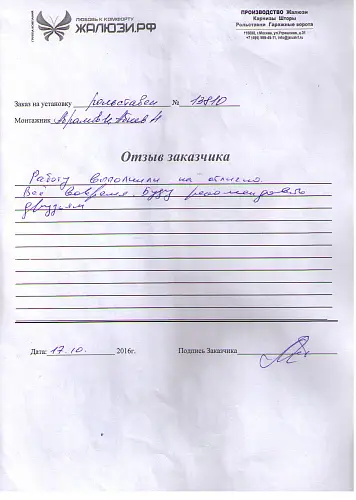 ЛЮБОВЬ К КОМФОРТУ
ЖАЛЮЗИ.РФ
ПРОИЗВОДСТВО Жалюзи
Карнизы Шторы
Рольставни Гаражные ворота
Заказ на установку рольставен № 13810
Монтажник
Отзыв заказчика
Работу выполнили на отлично.
Все вовремя. Буду рекомендовать
друзьям
Дата: 17.10. 2016г. Подпись Заказчика